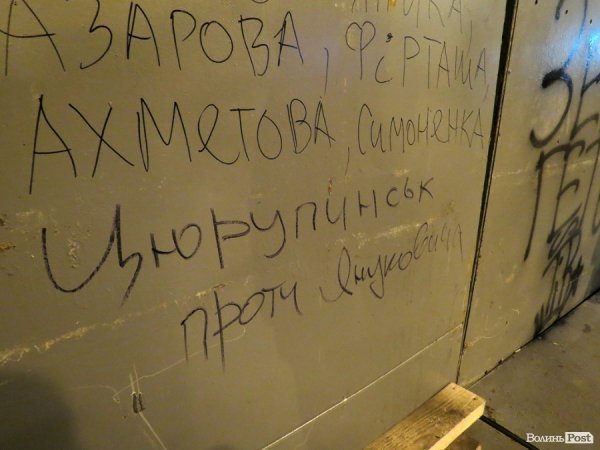 АЗАРОВА, ФІРТАША,
АХМЕТОВА, Симоненка
Цюрупинськ
проти Януковича
ВолиньPost